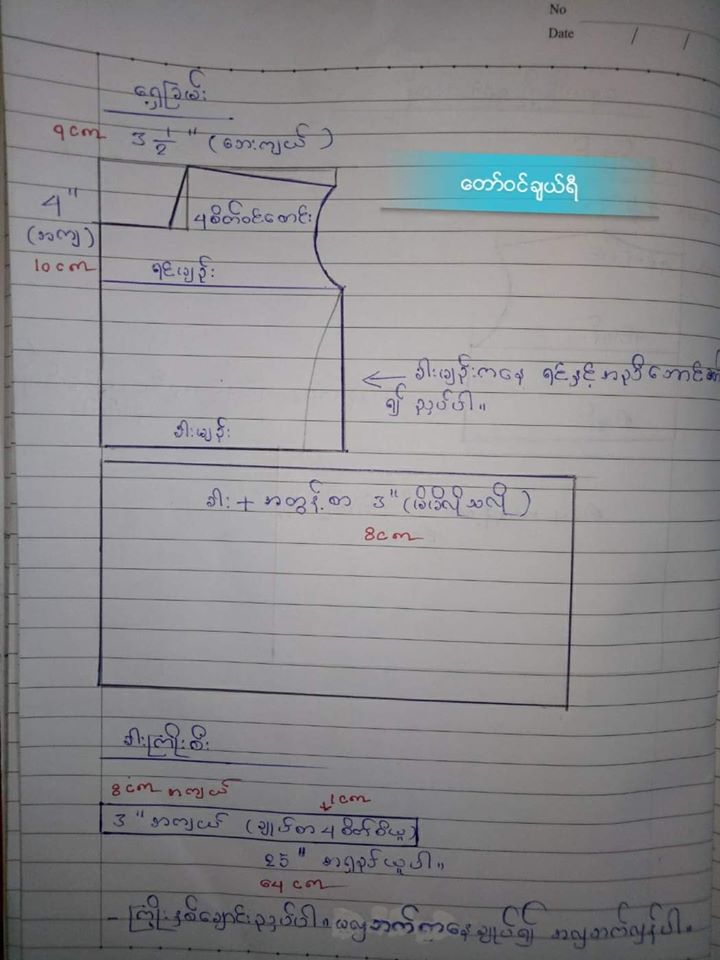 No
Date / /
ရှေ့ခြမ်း
9 cm
3 1/2 " (ဘေးကျယ်)
တော်ဝင်ချယ်ရီ
4"
(အကျ)
10 cm
4 စိတ်ဝင်စောင်း
ရင်ချဉ်း
ခါးချဉ်းကနေ ရင်နှင့် အညီ
၍ ညှပ်ပါ။
ခါးချဉ်း
ခါး + အတွန့်စာ 3" (မိမိလိုသလို)
8 cm
ခါးကြိုးစီး
8 cm အကျယ်
1 cm
3" အကျယ် (ချုပ်စာ 4 စိတ်စီယူ)
25" အရှည်ယူပါ။
64 cm
- ကြိုးနှစ်ချောင်းညှပ်ပါ။ မလှဘက်ကနေချုပ်၍ အလှဘက်လှန်ပါ။